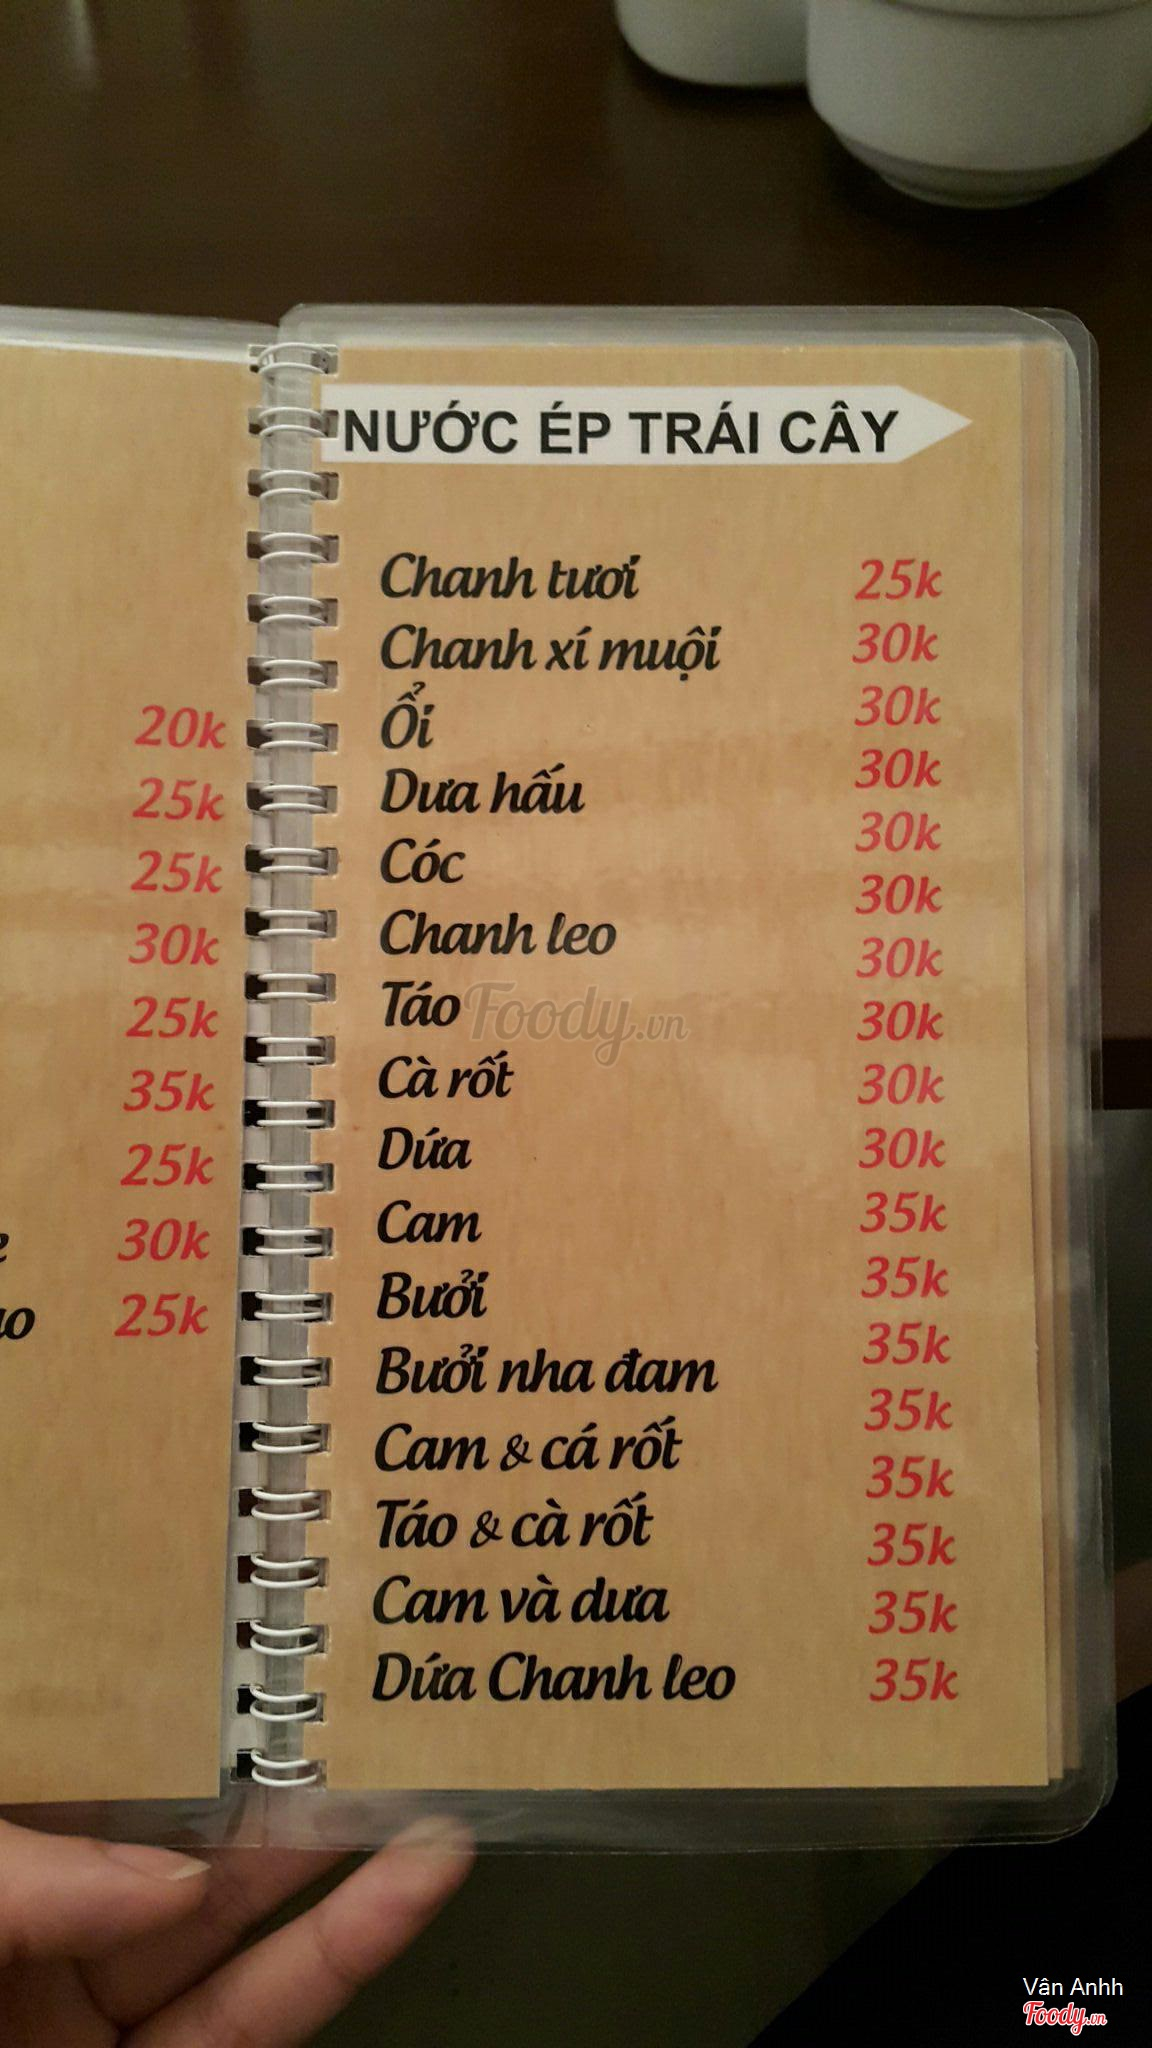 20k
25k
25k
30k
25k
35k
25k
30k
25k
NƯỚC ÉP TRÁI CÂY
Chanh tươi
Chanh xí muội
Ổi
Dưa hấu
Cóc
Chanh leo
Táo
Cà rốt
Dứa
Cam
Bưởi
Bưởi nha đam
Cam & cá rốt
Táo & cà rốt
Cam và dưa
Dứa Chanh leo
25k
30k
30k
30k
30k
30k
30k
30k
30k
30k
35k
35k
35k
35k
35k
35k
35k
35k
Foody.vn
Vân Anhh
Foody.vn